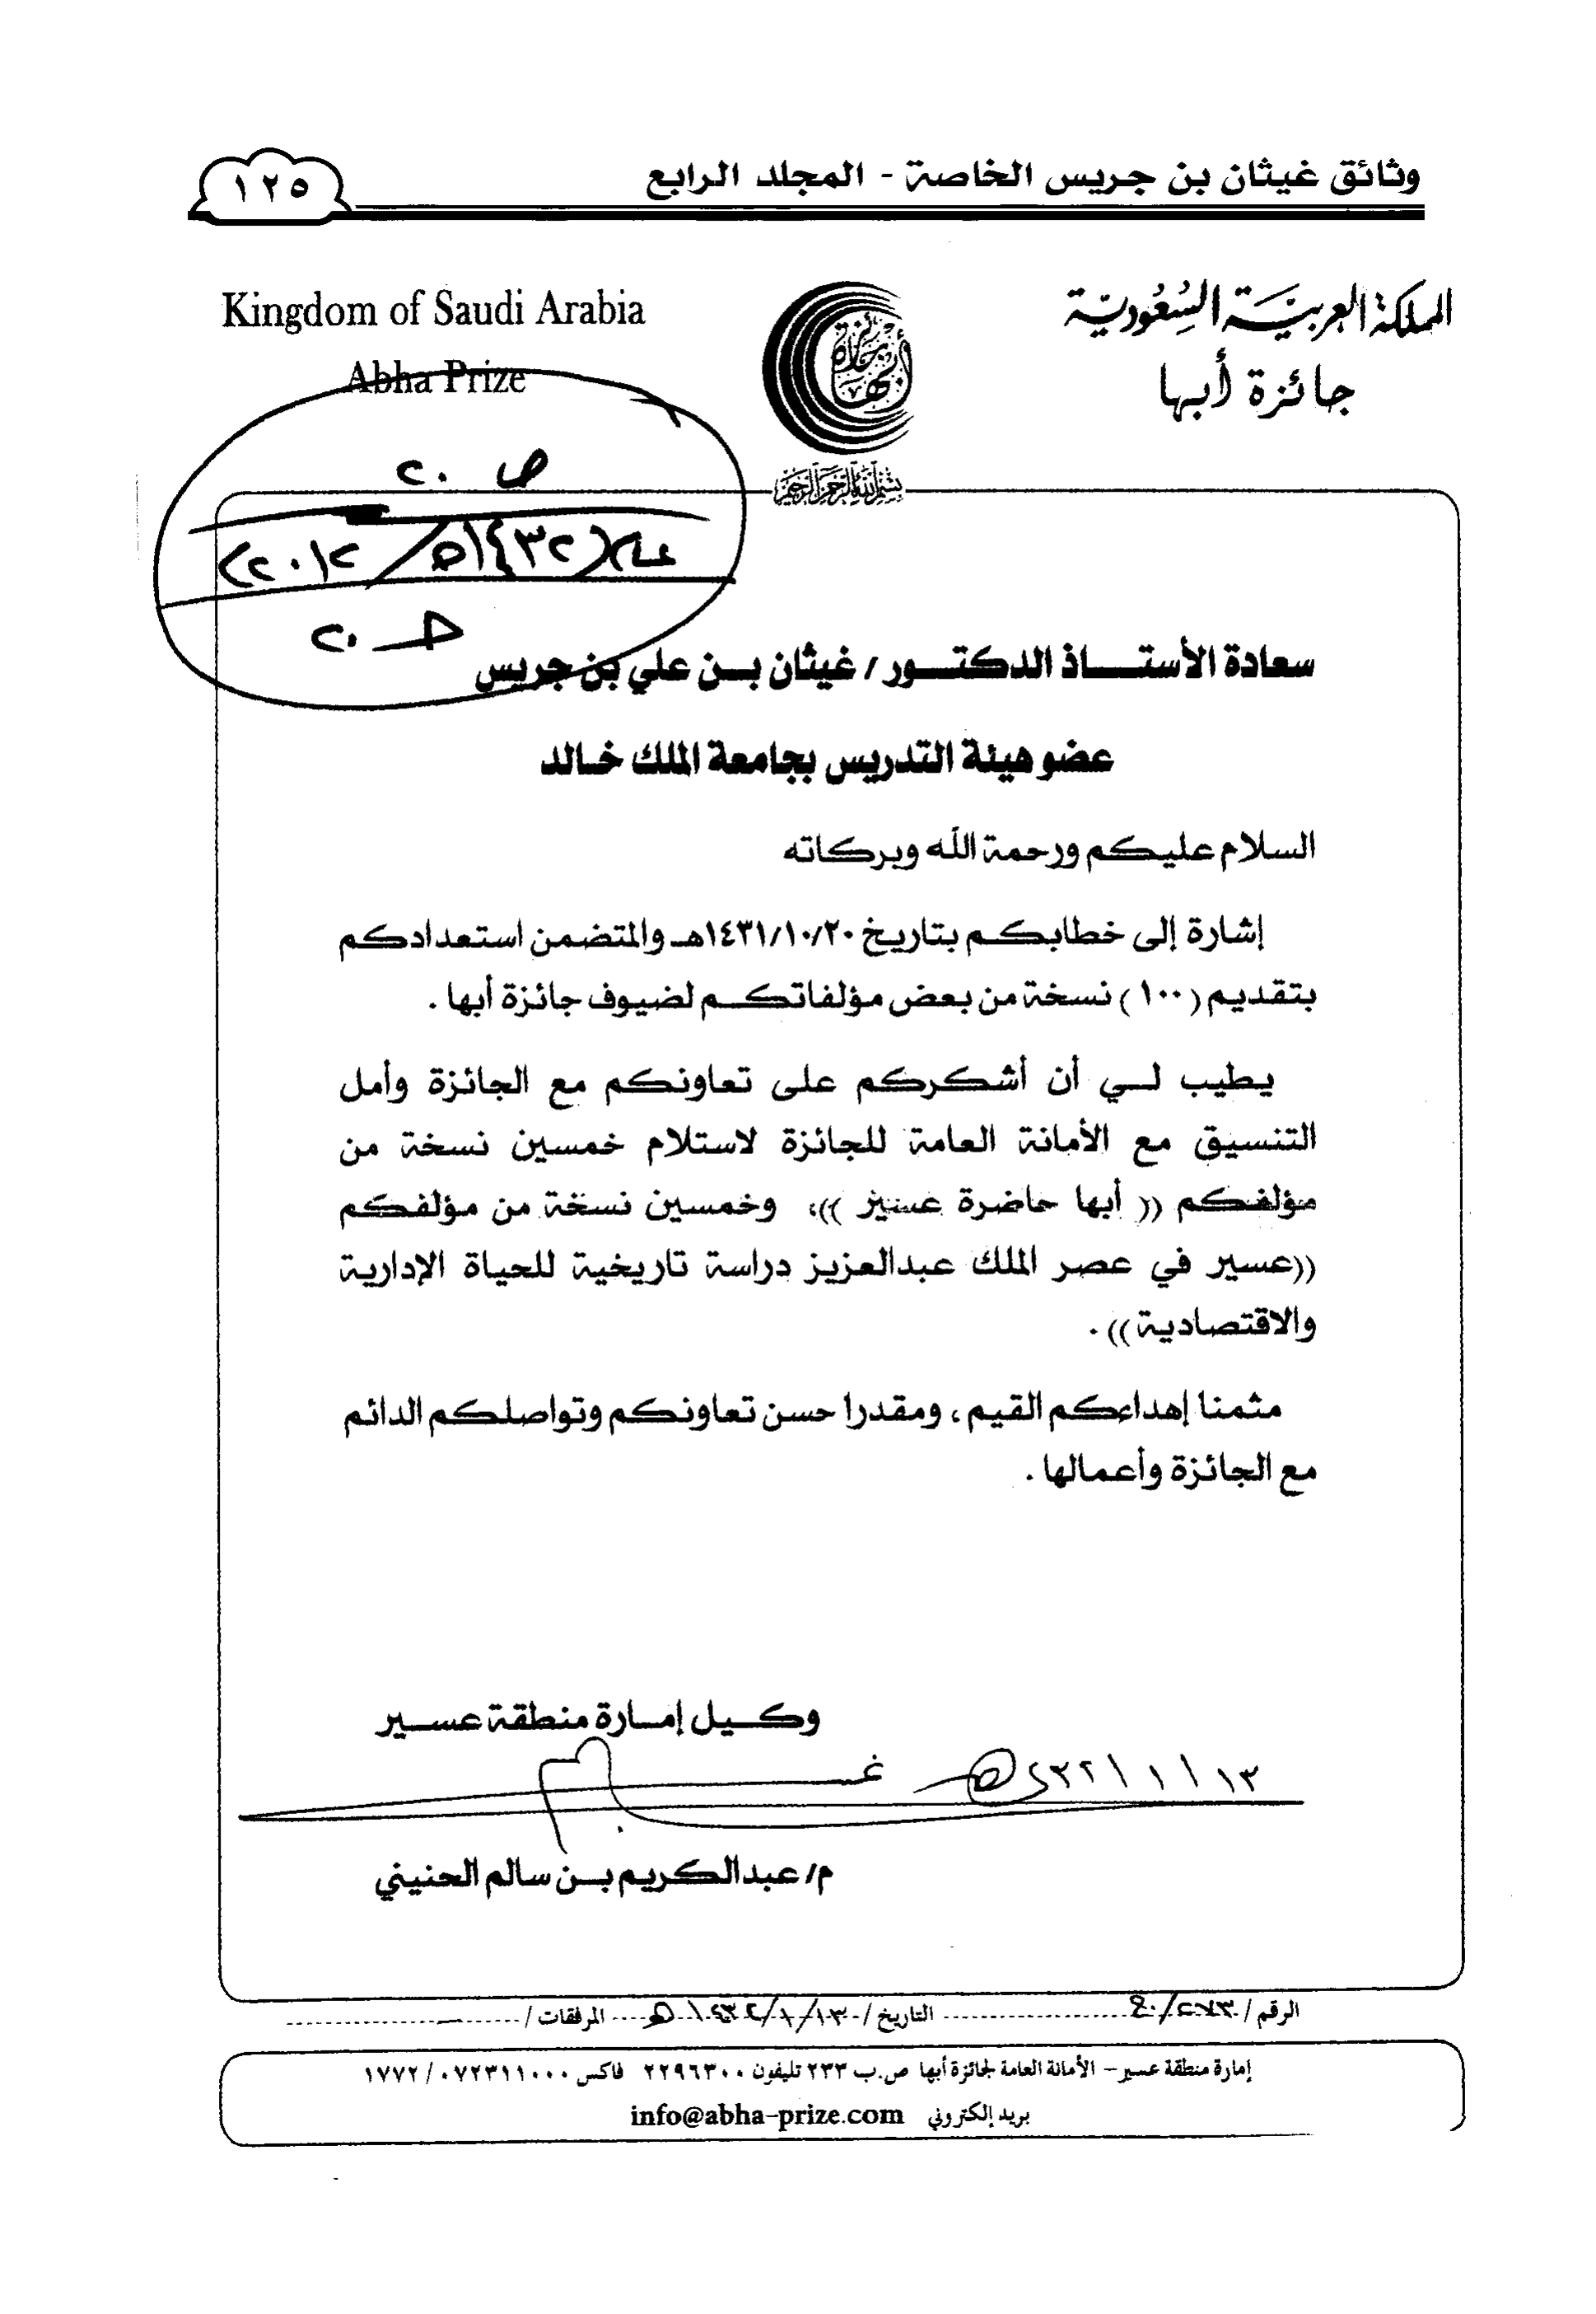 وثائق غيثان بن جريس الخاصة - المجلد الرابع
١٢٥
المملكة العربية السعودية
جائزة أبها
Kingdom of Saudi Arabia
Abha Prize
جائزة أبها
بسم الله الرحمن الرحيم
ص ٢٠
(١٤٣٢هـ / ٢٠١٢)
٢٠
سعادة الأستـــــاذ الدكتـــور / غيثان بـــن علي بن جريس
عضو هيئة التدريس بجامعة الملك خالد
السلام عليكم ورحمة الله وبركاته
إشارة إلى خطابكم بتاريخ ١٤٣١/١٠/٢٠هـ والمتضمن استعدادكم
بتقديم (١٠٠) نسخة من بعض مؤلفاتكم لضيوف جائزة أبها .
يطيب لي أن أشكركم على تعاونكم مع الجائزة وأمل
التنسيق مع الأمانة العامة للجائزة لاستلام خمسين نسخة من
مؤلفكم (( أبها حاضرة عسير ))، وخمسين نسخة من مؤلفكم
((عسير في عصر الملك عبدالعزيز دراسة تاريخية للحياة الإدارية
والاقتصادية)) .
مثمنا إهداءكم القيم ، ومقدرا حسن تعاونكم وتواصلكم الدائم
مع الجائزة وأعمالها .
وكـــيل إمـــارة منطقة عســـير
م/ عبدالكريم بـــن سالم الحنيني
الرقم / التاريخ / ١٣ / ١ / ١٤٣٢ هـ المرفقات /
إمارة منطقة عسير – الأمانة العامة لجائزة أبها ص.ب ٢٣٣ تليفون ٢٢٩٦٣٠٠ فاكس ٠٧٢٣١١٠٠٠ / ١٧٧٢
بريد إلكتروني info@abha-prize.com